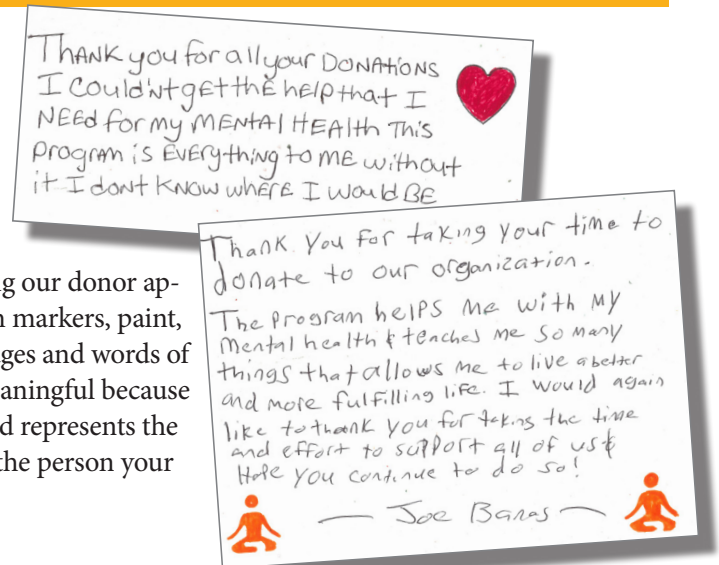 THANK you for all your DONATIONS
I Could'nt gET thE hElp that I
NEEd for my MENTAl HEAlth This
program is EVErything to ME without
it I dont KNow whErE I would BE
Thank You for taking your time to
donate to our organization.
The Program helps Me with My
Mental health & teaches me so many
things that allows me to live a better
and more fulfilling life. I would again
like to thank you for taking the time
and effort to support all of us &
Hope you continue to do so!
— Joe Banas —
ng our donor ap-
n markers, paint,
ges and words of
aningful because
d represents the
the person your